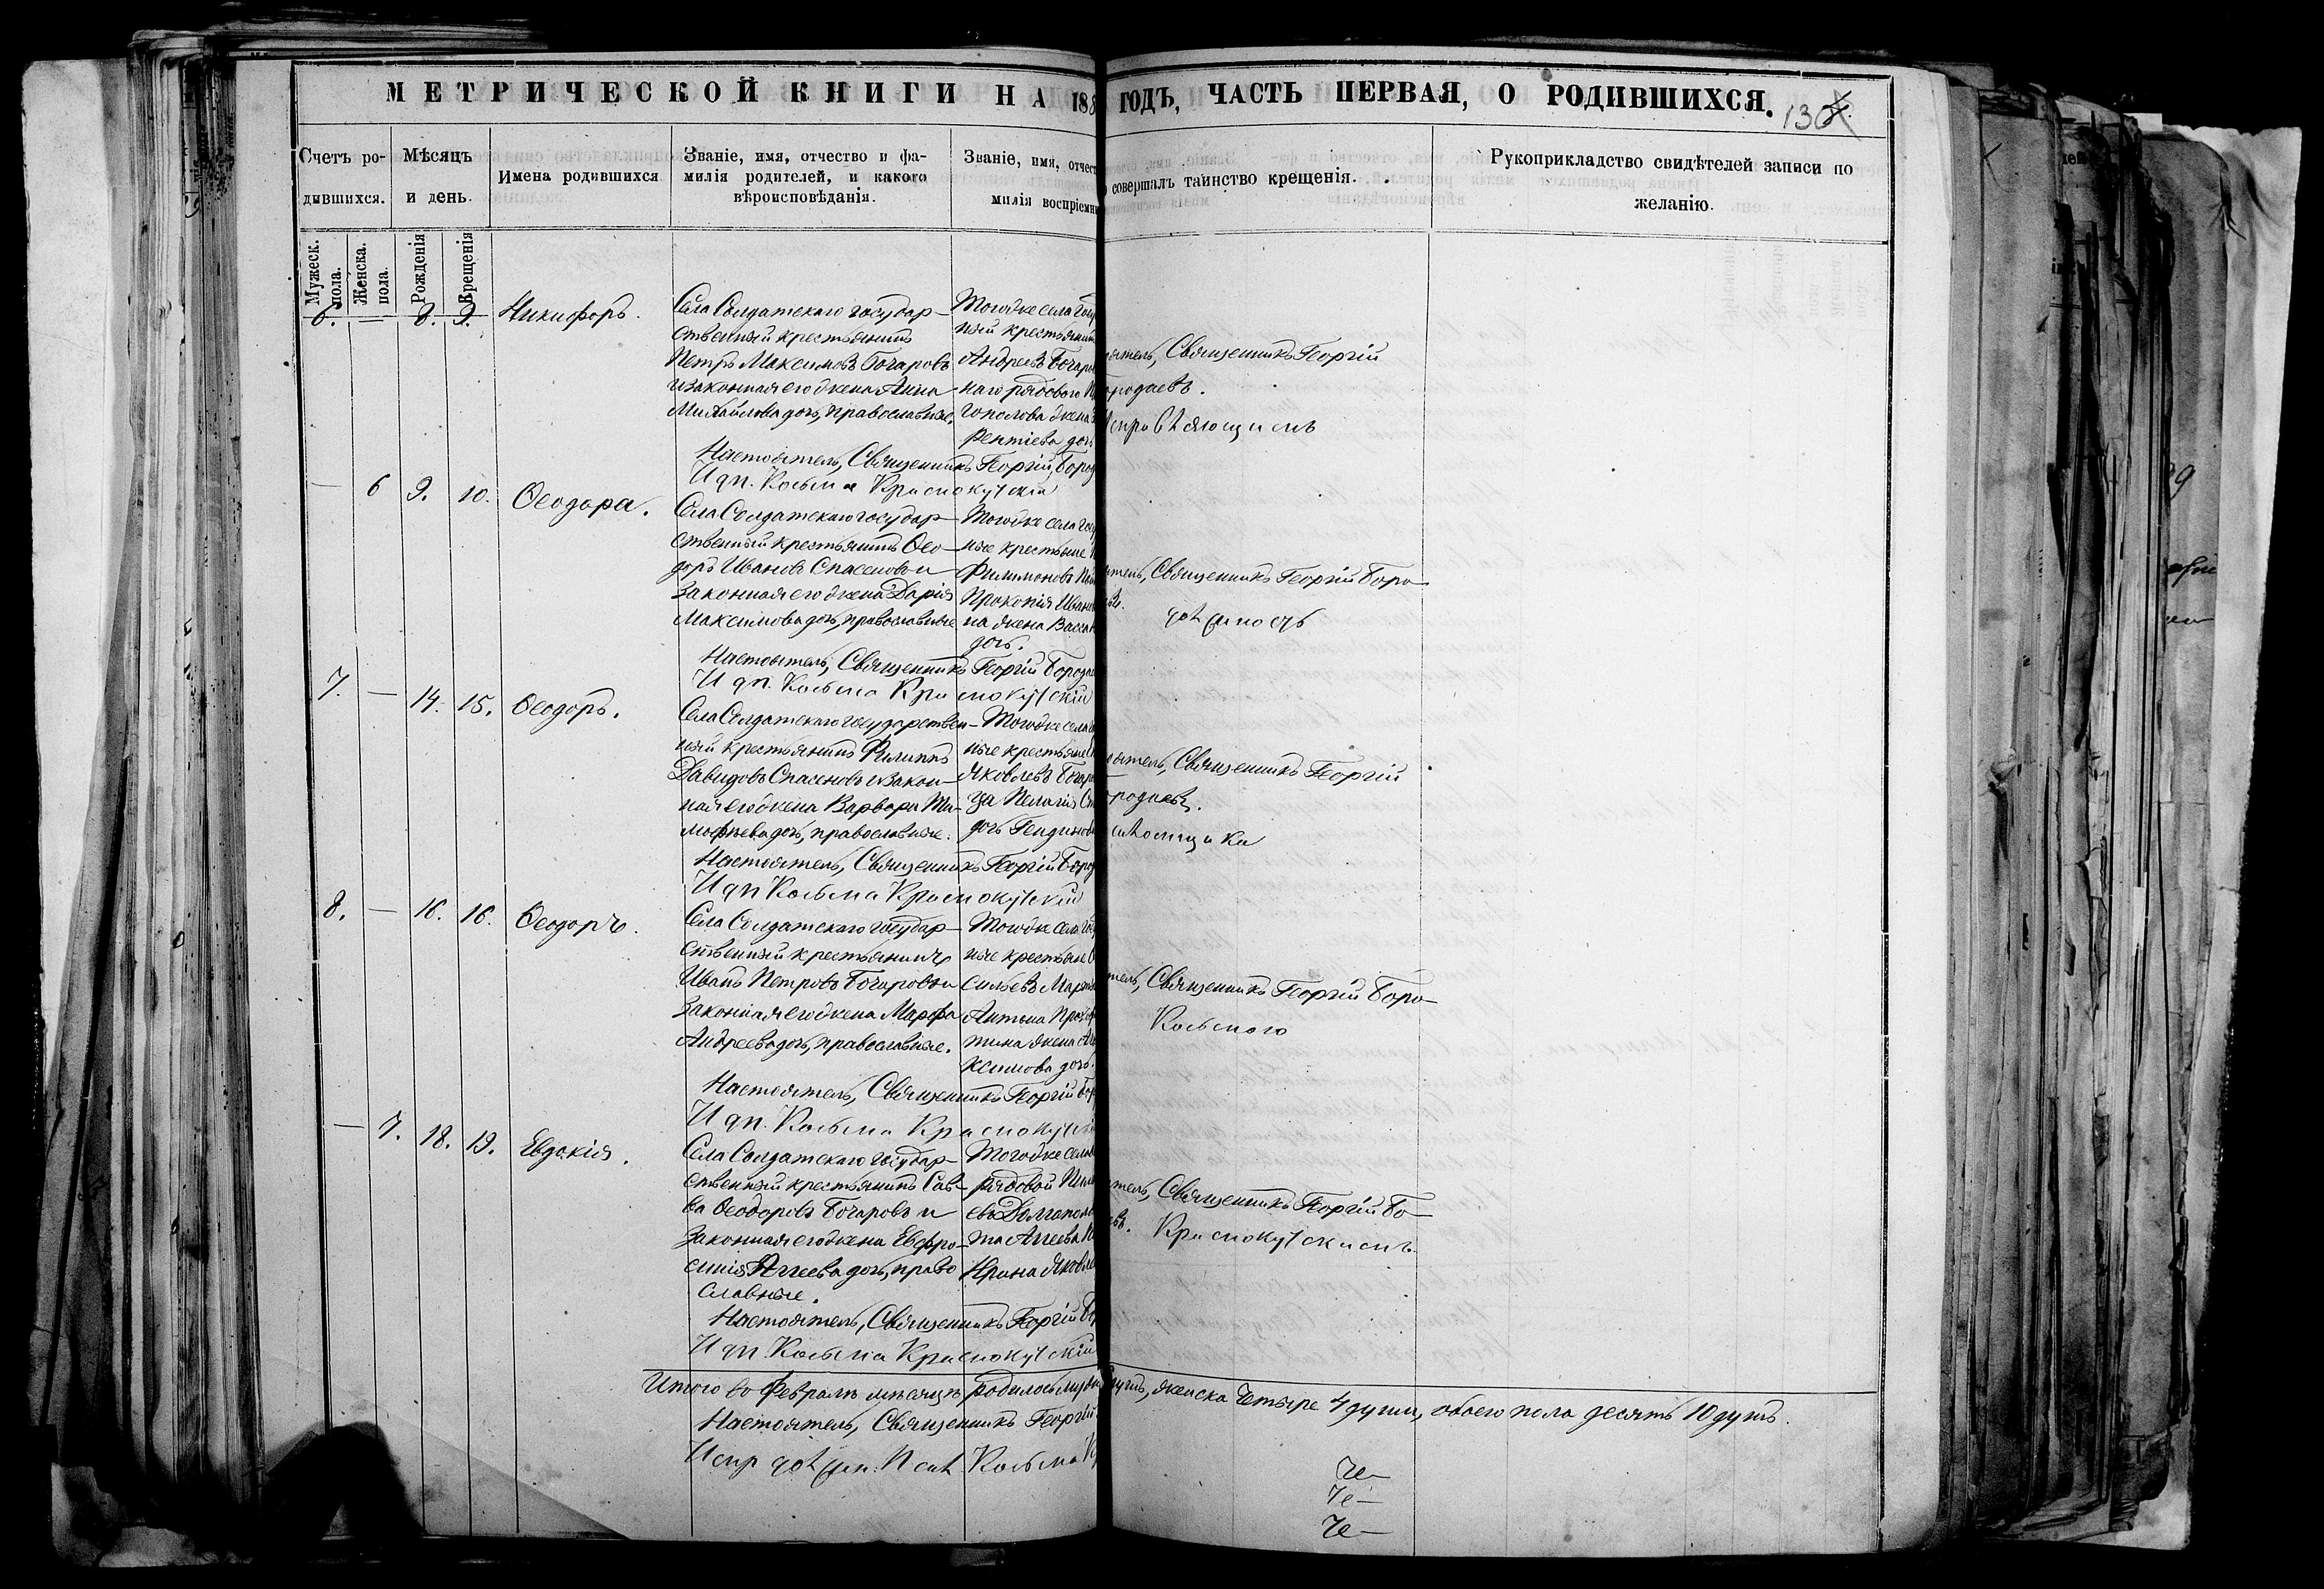 МЕТРИЧЕСКОЙ КНИГИ НА 188
ГОДЪ, ЧАСТЬ ПЕРВАЯ, О РОДИВШИХСЯ.
130
Счетъ ро-
дившихся.
Мѣсяцъ
и день.
Имена родившихся
Званіе, имя, отчество и фа-
милія родителей, и какого
вѣроисповѣданія.
Званіе, имя, отчест
милія воспріемни
совершалъ таинство крещенія.
Рукоприкладство свидѣтелей записи по
желанію.
Мужеск. пола.
Женска. пола.
Рожденія
Крещенія
6. — 8. 9. Никифоръ.
Села Солдатскаго государ-
ственный крестьянинъ
Петръ Максимовъ Бочаровъ
и законная его жена Анна
Михайлова дочь, православные.
Тогоже села госу
ный крестьянинъ
Андреевъ Бочаро
наго рядового
гополова жена
рентіева дочь
ятель, Священникъ Георгій
ородаевъ.
Настоятель, Священникъ Георгій Бород
И дп. Косьма Краснокутскій
— 6 9. 10. Ѳеодора.
Села Солдатскаго государ-
ственный крестьянинъ Ѳео-
доръ Ивановъ Спасеновъ и
законная его жена Дарія
Максимова дочь, православные
Тогоже села госу
ные крестьяне
Филимоновъ
Прокопія Иван
на жена Васса
дочь.
тель, Священникъ Георгій Боро-
Настоятель, Священникъ Георгій Бородае
И дп. Косьма Краснокутскій
7. — 14. 15. Ѳеодоръ.
Села Солдатскаго государствен-
ный крестьянинъ Филиппъ
Давидовъ Спасеновъ и закон-
ная его жена Варвара Ти-
мофѣева дочь, православные.
Тогоже села
ные крестьяне
Яковлевъ Бочаро
ца Пелагія
дочь
ятель, Священникъ Георгій
родаевъ.
Настоятель, Священникъ Георгій Бород
И дп Косьма Краснокутскій
8. — 16. 16. Ѳеодоръ.
Села Солдатскаго государ-
ственный крестьянинъ
Иванъ Петровъ Бочаровъ и
законная его жена Марфа
Андреева дочь, православные.
Тогоже села гос
ные крестьяне
сильевъ
Антона
тина жена
ксимова дочь.
тель, Священникъ Георгій Боро-
Косьмою
Настоятель, Священникъ Георгій Бор
И дп. Косьма Краснокутскій
— 7. 18. 19. Евдокія.
Села Солдатскаго государ-
ственный крестьянинъ Сав-
ва Ѳеодоровъ Бочаровъ и
законная его жена Евфро-
синія Аггеева дочь, право
славные.
Тогоже села
рядовой
евъ Долгопол
та Аггеева
Ирина Яковле
тель, Священникъ Георгій Бо-
евъ.
Краснокутскимъ
Настоятель, Священникъ Георгій Бо
И дп. Косьма Краснокутскій
Итого во Февралѣ мѣсяцѣ родилось муж
душъ, женска четыре 4 души, обоего пола десять 10 душъ.
Настоятель, Священникъ Георгій
Испр Косьма
Че-
Че-
Че-